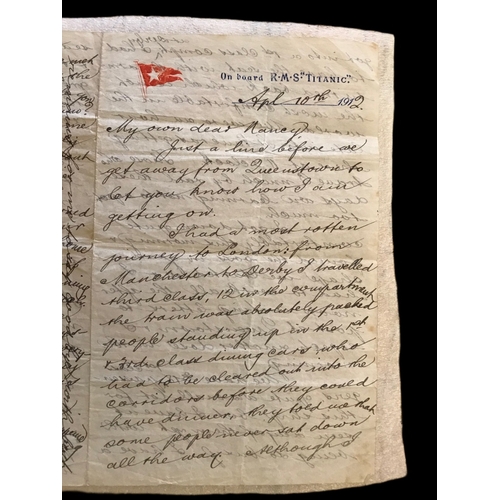 On board R·M·S·"TITANIC".
Apl 10th 1912
My own dear Nancy
Just a line before we
get away from Queenstown to
let you know how I am
getting on.
I had a most rotten
journey to London: from
Manchester to Derby I travelled
third class, 12 in the compartment
the train was absolutely packed
people standing up in the 1st
& 3rd class dining cars, who
had to be cleared out into the
corridors before they could
have dinner, they told us that
some people never sat down
all the way. Although I